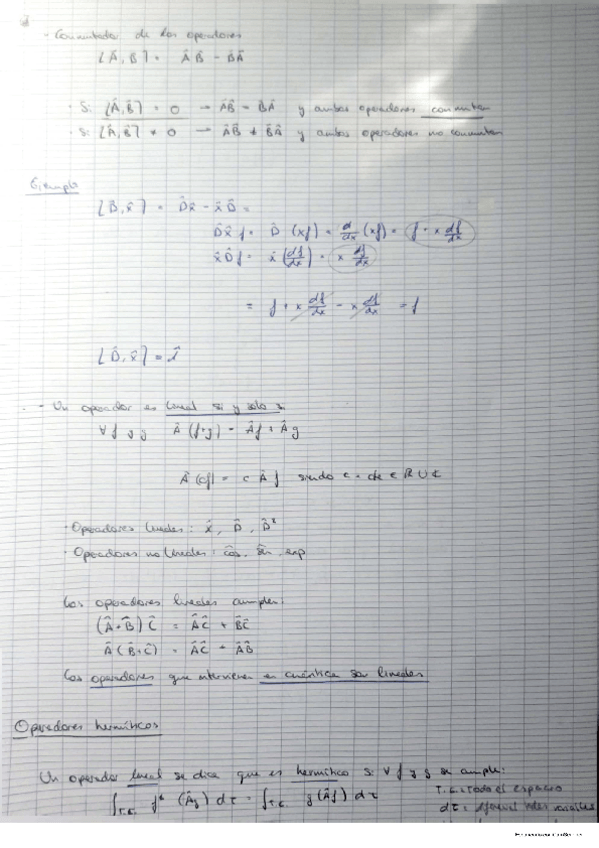 - Conmutador de dos operadores
[Â, B̂] = ÂB̂ - B̂Â
· Si [Â, B̂] = 0 → ÂB̂ = B̂Â y ambos operadores conmutan
· Si [Â, B̂] ≠ 0 → ÂB̂ ≠ B̂Â y ambos operadores no conmutan
Ejemplo
[D̂, x̂] = D̂x̂ - x̂D̂ =
D̂x̂f = D̂ (xf) = d/dx (xf) = f + x df/dx
x̂D̂f = x̂ (df/dx) = x df/dx
= f + x df/dx - x df/dx = f
[D̂, x̂] = 1̂
- Un operador es lineal si y solo si
∀ f y g Â (f+g) = Âf + Âg
Â (cf) = c Âf siendo c = cte ∈ ℝ ∪ ℂ
· Operadores lineales: x̂, D̂, D̂²
· Operadores no lineales: cos, sen, exp
Los operadores lineales cumplen:
(Â+B̂) Ĉ = ÂĈ + B̂Ĉ
Â (B̂+Ĉ) = ÂĈ + ÂB̂
Los operadores que intervienen en cuántica son lineales
Operadores hermíticos
Un operador lineal se dice que es hermítico si ∀ f y g se cumple:
∫T.E. f* (Âg) dτ = ∫T.E. g (Âf) dτ
T.E. = Todo el espacio
dτ =